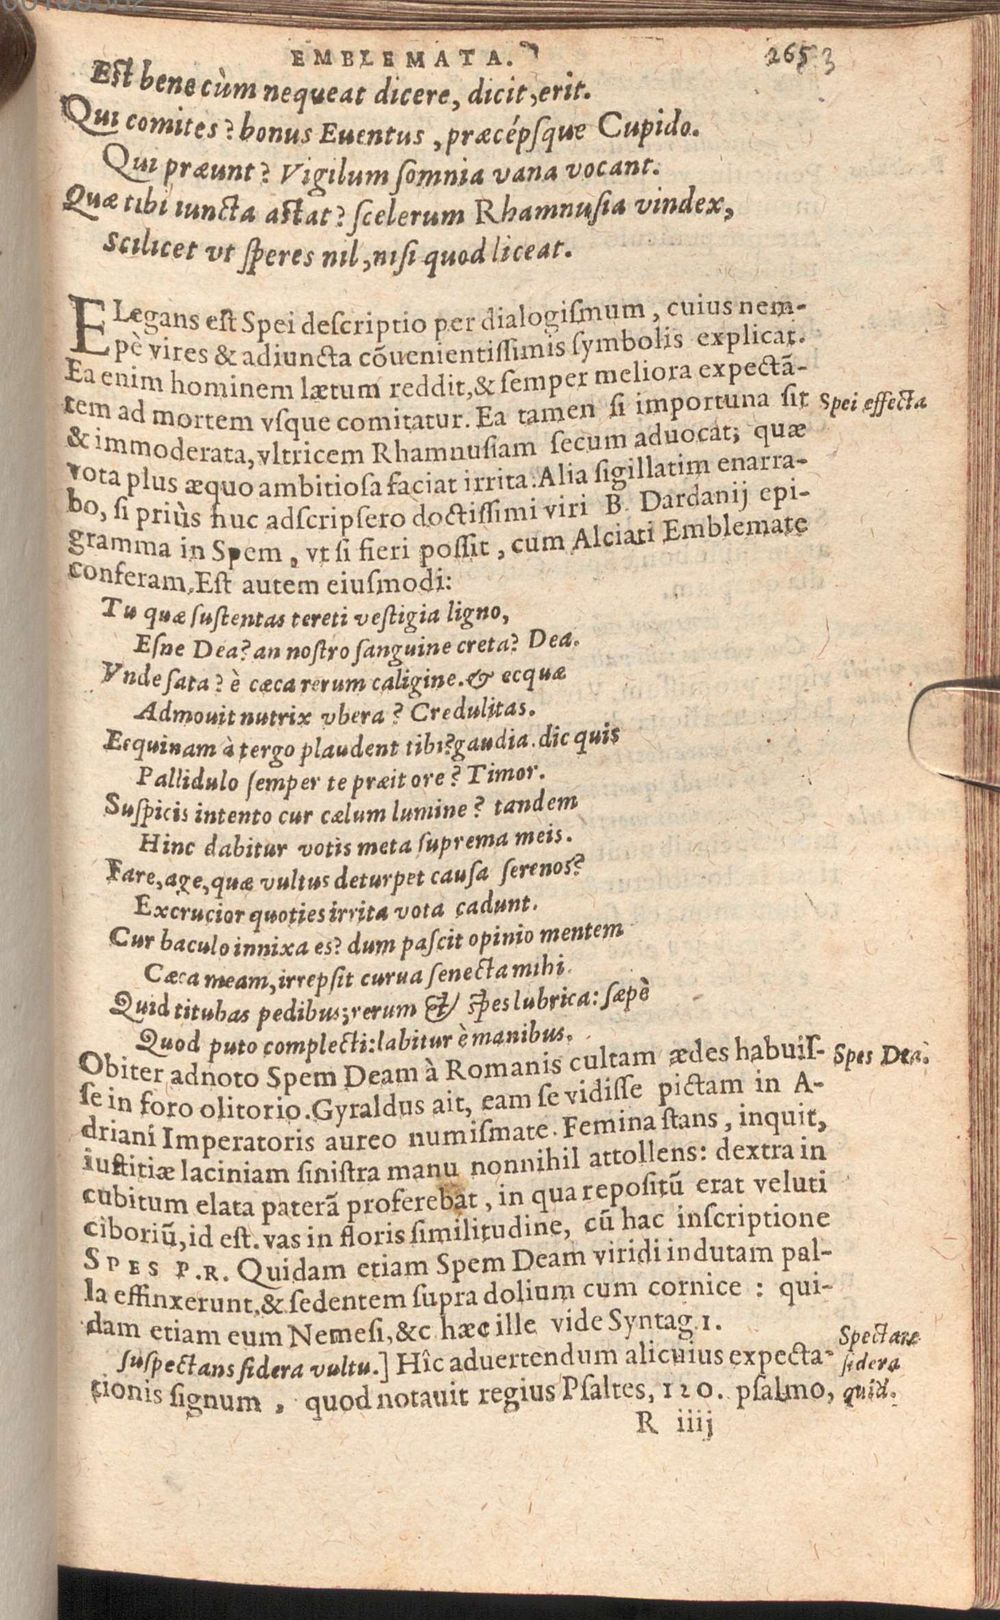 EMBLEMATA. 265 3
Est bene cùm nequeat dicere, dicit, erit.
Qui comites? bonus Euentus, præcépsque Cupido.
Qui præunt? Vigilum somnia vana vocant.
Quæ tibi iuncta astat? scelerum Rhamnusia vindex,
Scilicet vt speres nil, nisi quod liceat.
ELegans est Spei descriptio per dialogismum, cuius nem-
pè vires & adiuncta cõuenientissimis symbolis explicat.
Ea enim hominem lætum reddit, & semper meliora expectã-
tem ad mortem vsque comitatur. Ea tamen si importuna sit
Spei effecta
& immoderata, vltricem Rhamnusiam secum aduocat; quæ
vota plus æquo ambitiosa faciat irrita. Alia sigillatim enarra-
bo, si priùs huc adscripsero doctissimi viri B. Dardanij epi-
gramma in Spem, vt si fieri possit, cum Alciati Emblemate
conferam, Est autem eiusmodi:
Tu quæ sustentas tereti vestigia ligno,
Esne Dea? an nostro sanguine creta? Dea.
Vnde sata? è cæca rerum caligine. & ecquæ
Admouit nutrix vbera? Credulitas.
Ecquinam à tergo plaudent tibi? gaudia. dic quis
Pallidulo semper te præit ore? Timor.
Suspicis intento cur cælum lumine? tandem
Hinc dabitur votis meta suprema meis.
Fare, age, quæ vultus deturpet causa serenos?
Excrucior quoties irrita vota cadunt.
Cur baculo innixa es? dum pascit opinio mentem
Cæca meam, irrepsit curua senecta mihi.
Quid titubas pedibus; rerum & spes lubrica: sæpè
Quod puto complecti: labitur è manibus.
Obiter adnoto Spem Deam à Romanis cultam ædes habuis-
Spes Dea.
se in foro olitorio. Gyraldus ait, eam se vidisse pictam in A-
driani Imperatoris aureo numismate. Femina stans, inquit,
iustitiæ laciniam sinistra manu nonnihil attollens: dextra in
cubitum elata paterã proferebat, in qua repositũ erat veluti
ciboriũ, id est. vas in floris similitudine, cũ hac inscriptione
SPES P.R. Quidam etiam Spem Deam viridi indutam pal-
la effinxerunt, & sedentem supra dolium cum cornice : qui-
dam etiam eum Nemesi, &c hæc ille vide Syntag 1.
suspectans sidera vultu.] Hîc aduertendum alicuius expecta-
Spectare
sidera
quid.
tionis signum, quod notauit regius Psaltes, 120. psalmo,
R iiij